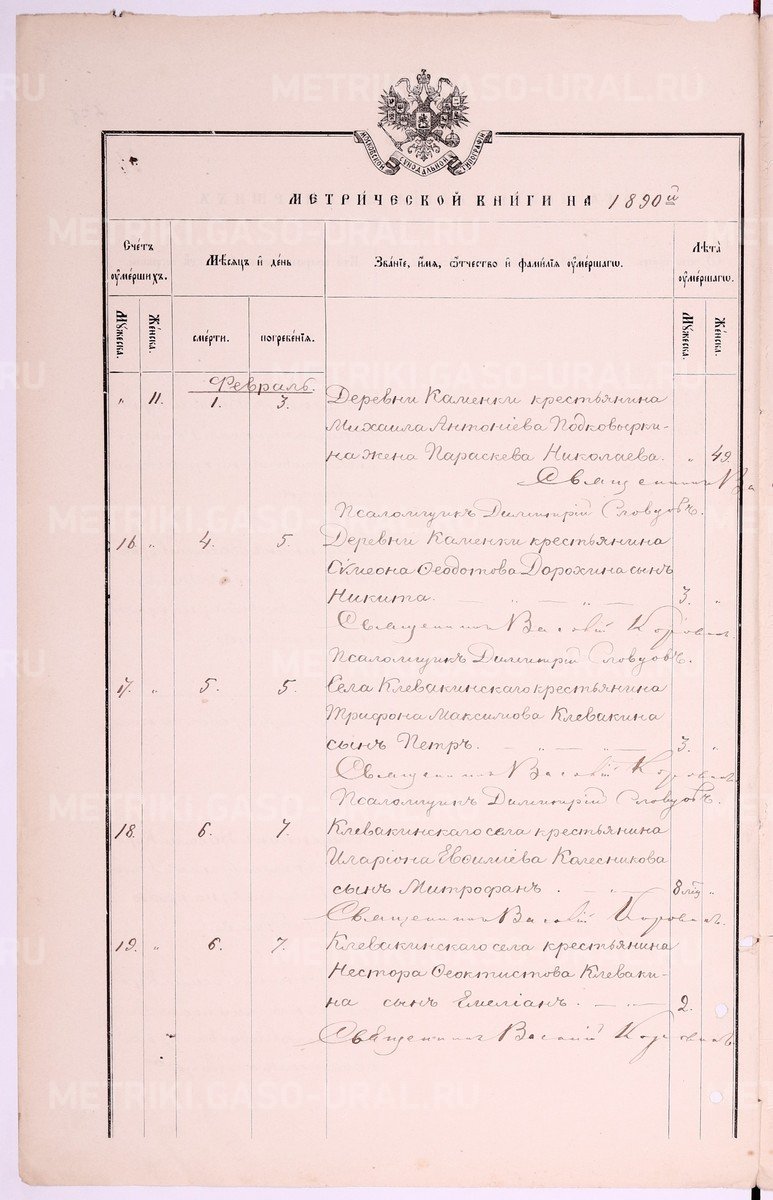 МОСКОВСКОЙ СѴНОДАЛЬНОЙ ТИПОГРАФІИ
МЕТРИ́ЧЕСКОЙ КНИ́ГИ НА 1890 й
Сче́тъ оу҆ме́ршихъ.
Мѣ́сяцъ и҆ де́нь
Зва́нїе, и҆́мѧ, ѻ҆́тчество и҆ фами́лїѧ оу҆ме́ршагѡ.
Лѣ́та оу҆ме́ршагѡ.
Мꙋ́жеска.
Же́нска.
сме́рти.
погребе́нїѧ.
Мꙋ́жеска.
Же́нска.
Февраль.
„ 11. 1. 3. Деревни Каменки крестьянина
Михаила Антоніева Подковырки-
на жена Параскева Николаева. „ 49.
Священникъ Ва
Псаломщикъ Димитрій Словцовъ.
16. „ 4. 5. Деревни Каменки крестьянина
Сѵмеона Ѳеодотова Дорохина сынъ
Никита. — „ — 3. „
Священникъ Василій
Псаломщикъ Димитрій Словцовъ.
17. „ 5. 5. Села Клевакинскаго крестьянина
Трифона Максимова Клевакина
сынъ Петръ. — „ — „ — 3. „
Священникъ Василій
Псаломщикъ Димитрій Словцовъ.
18. „ 6. 7. Клевакинскаго села крестьянина
Иларіона Евѳиміева Колесникова
сынъ Митрофанъ. — „ 8 „
Священникъ Василій
19. „ 6. 7. Клевакинскаго села крестьянина
Нестора Ѳеоктистова Клеваки-
на сынъ Емеліанъ. — „ — 2.
Священникъ Василій
METRIKI.GASO-URAL.RU